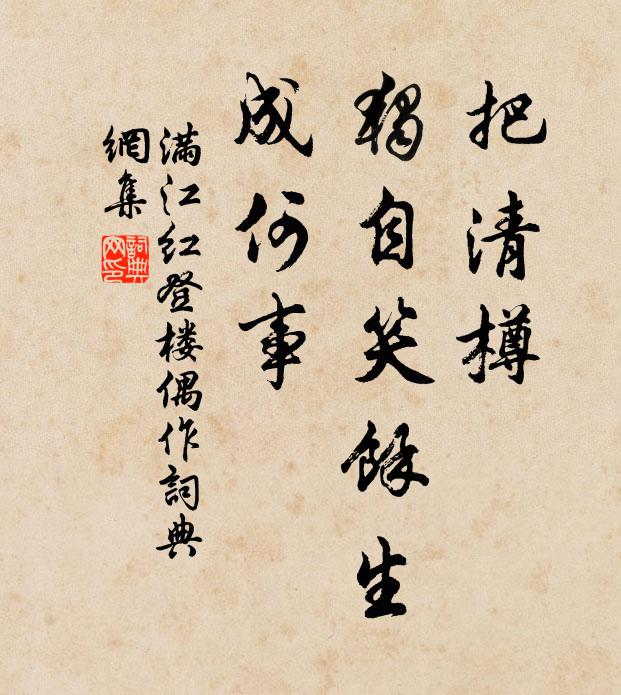 把清樽
獨自笑餘生
成何事
满江红登楼偶作詞典
網集
詞典
网印